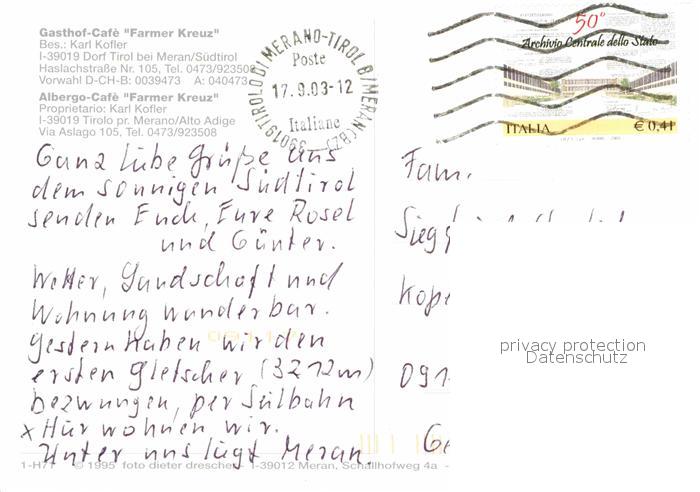 Gasthof-Cafè "Farmer Kreuz"
Bes.: Karl Kofler
I-39019 Dorf Tirol bei Meran/Südtirol
Haslachstraße Nr. 105, Tel. 0473/923508
Vorwahl D-CH-B: 0039473 A: 040473
Albergo-Cafè "Farmer Kreuz"
Proprietario: Karl Kofler
I-39019 Tirolo pr. Merano/Alto Adige
Via Aslago 105, Tel. 0473/923508
39019 TIROLO DI MERANO-TIROL BI MERAN (BZ)
Poste
17.9.03-12
Italiane
50°
Archivio Centrale dello Stato
ITALIA € 0,41
Ganz liebe Grüße aus
dem sonnigen Südtirol
senden Euch, Eure Rosel
und Günter.
Wetter, Landschaft und
Wohnung wunderbar.
Gestern haben wir den
ersten Gletscher (3212m)
bezwungen, per Seilbahn
x Hier wohnen wir.
Unter uns liegt Meran.
Fam.
Siegf
Kope
091
Ge
privacy protection
Datenschutz
1-H71 © 1995 foto dieter drescher - I-39012 Meran, Schallhofweg 4a -